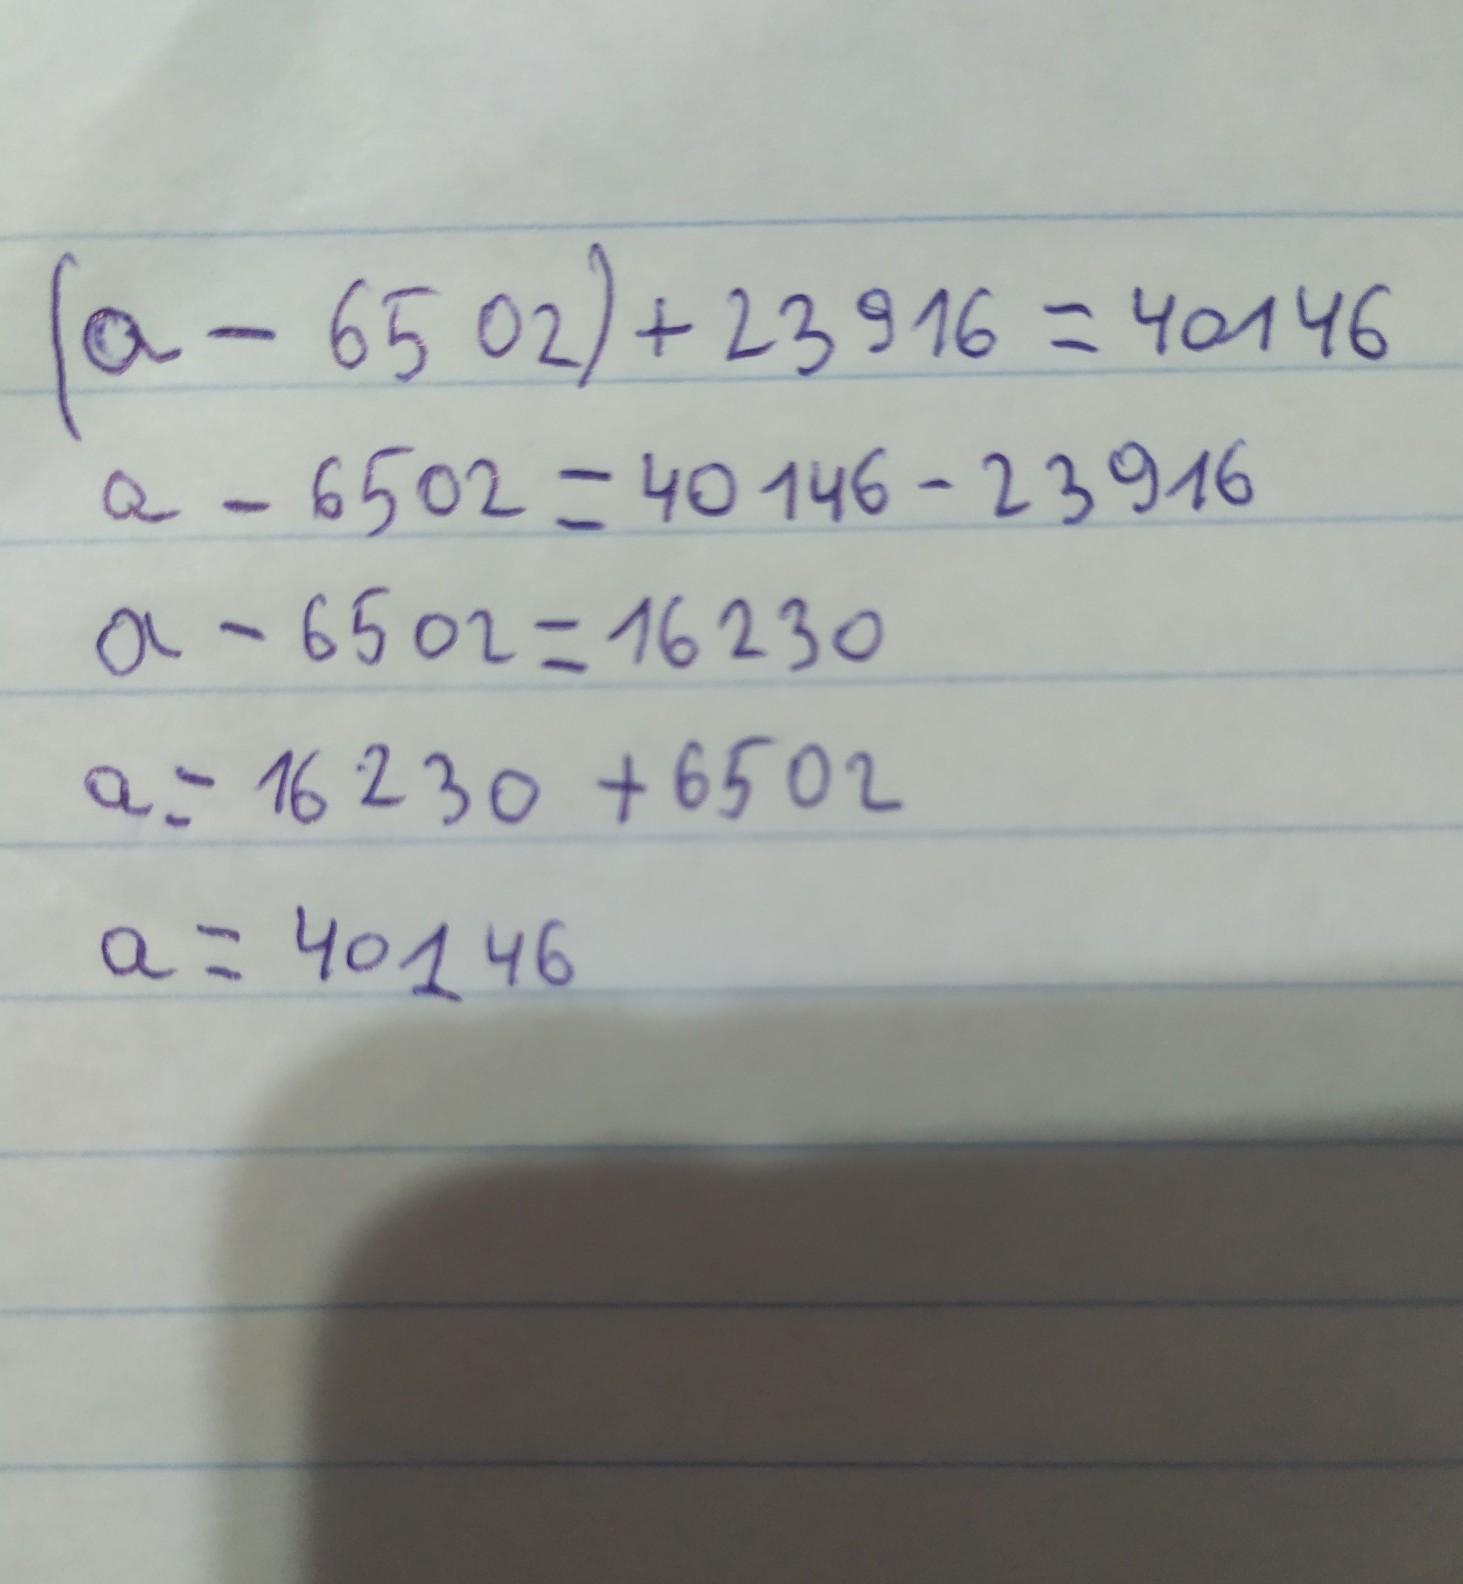 (a - 6502) + 23916 = 40146
a - 6502 = 40146 - 23916
a - 6502 = 16230
a = 16230 + 6502
a = 40146